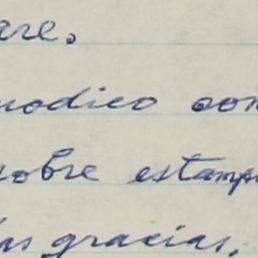 are.
nodico con
sobre estamp
ás gracias.